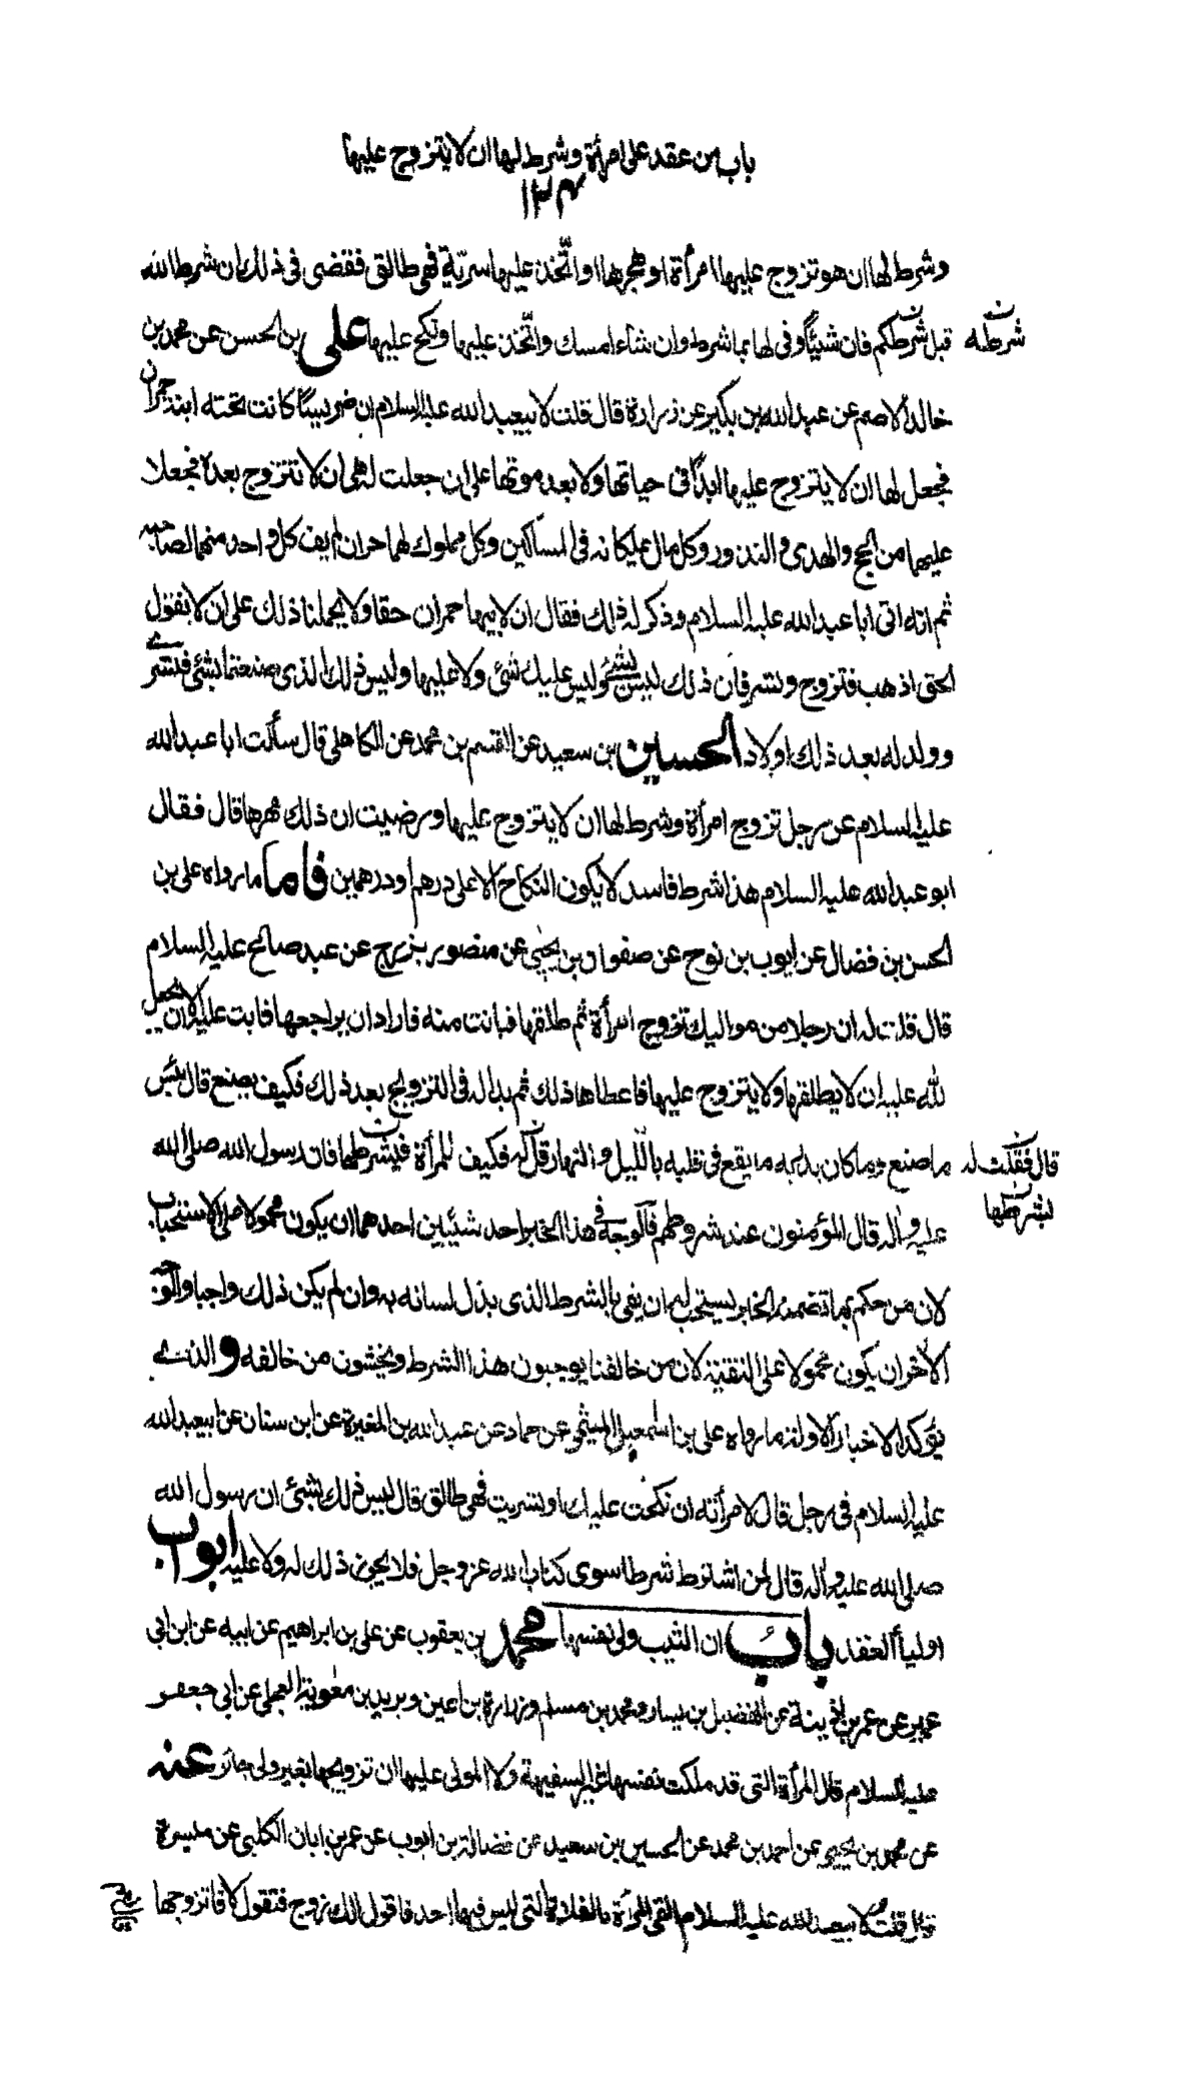 باب من عقد على امرأة وشرط لها ان لا يتزوج عليها
١٢٤
وشرط لها ان هو تزوج عليها امرأة او هجرها او اتّخذ عليها سرّية فهي طالق فقضى في ذلك ان شرط الله
شرطه قبل شرطكم فان شيئا وفى لها بما شرط وان شاء امسك واتّخذ عليها ونكح عليها علي بن الحسن عن محمد بن
خالد الاصم عن عبد الله بن بكير عن زرارة قال قلت لابيعبد الله عليه السلام ان ضريسا كانت تحته ابنة حمران
فجعل لها ان لا يتزوج عليها ابداً في حياتها ولا بعد موتها على ان جعلت له هي ان لا تتزوج بعده فجعلا
عليهما من الحج والهدى والنذور وكل مال يملكانه في المساكين وكل مملوك لهما حر ان لم يف كل واحد منهما لصاحبه
ثم انه اتى ابا عبد الله عليه السلام وذكر له ذلك فقال ان لابيها حمران حقا ولا يحملنا ذلك على ان لا نقول
الحق اذهب فتزوج وتسر فان ذلك ليس بشئ وليس عليك شئ ولا عليها وليس ذلك الذى صنعتما بشئ فتسرى
وولد له بعد ذلك اولاد الحسين بن سعيد عن القسم بن محمد عن الكاهلي قال سألت ابا عبد الله
عليه السلام عن رجل تزوج امرأة وشرط لها ان لا يتزوج عليها ورضيت ان ذلك مهرها قال فقال
ابو عبد الله عليه السلام هذا شرط فاسد لا يكون النكاح الا على درهم او درهمين فاما ما رواه على بن
الحسن بن فضال عن ايوب بن نوح عن صفوان بن يحيى عن منصور بزرج عن عبد صالح عليه السلام
قال قلت له ان رجلا من مواليك تزوج امرأة ثم طلقها فبانت منه فاراد ان يراجعها فابت عليه الا ان يجعل
لله عليه ان لا يطلقها ولا يتزوج عليها فاعطاها ذلك ثم بدا له في التزويج بعد ذلك فكيف يصنع قال بئس
قال فقلت له ما صنع وما كان يدريه ما يقع في قلبه بالليل والنهار قل له فكيف للمرأة فيشرطها فان رسول الله صلى الله
بشرطها
عليه وآله قال المؤمنون عند شروطهم فالوجه في هذا الخبر احد شيئين احدهما ان يكون محمولا على الاستحباب
لان من حكم ما تضمنه الخبر يستحب له ان يفي بالشرط الذى بذل لسانه به وان لم يكن ذلك واجبا والوجه
الآخر ان يكون محمولا على التقية لان من خالفنا يوجبون هذا الشرط ويخشون من خالفه والذى
يؤكد الاخبار الاولة ما رواه على بن اسمعيل الميثمي عن حماد عن عبد الله بن المغيرة عن ابن سنان عن ابيعبد الله
عليه السلام في رجل قال لامرأته ان نكحت عليك او تسريت فهي طالق قال ليس ذلك بشئ ان رسول الله
صلى الله عليه وآله قال من اشترط شرطا سوى كتاب الله عز وجل فلا يجوز ذلك له ولا عليه ابواب
اولياء العقد باب ان الثيب ولى نفسها محمد بن يعقوب عن علي بن ابراهيم عن ابيه عن ابن ابي
عمير عن عمر بن اذينة عن الفضيل بن يسار ومحمد بن مسلم وزرارة بن اعين وبريد بن معوية العجلي عن ابي جعفر
عليه السلام قال المرأة التي قد ملكت نفسها غير السفيهة ولا المولى عليها ان تزويجها بغير ولى جائز عنه
عن محمد بن يحيى عن احمد بن محمد عن الحسين بن سعيد عن فضالة بن ايوب عن عمر بن ابان الكلبي عن ميسرة
قال قلت لابيعبد الله عليه السلام القى المرأة بالفلاة التي ليس فيها احد فاقول الك زوج فتقول لا فاتزوجها